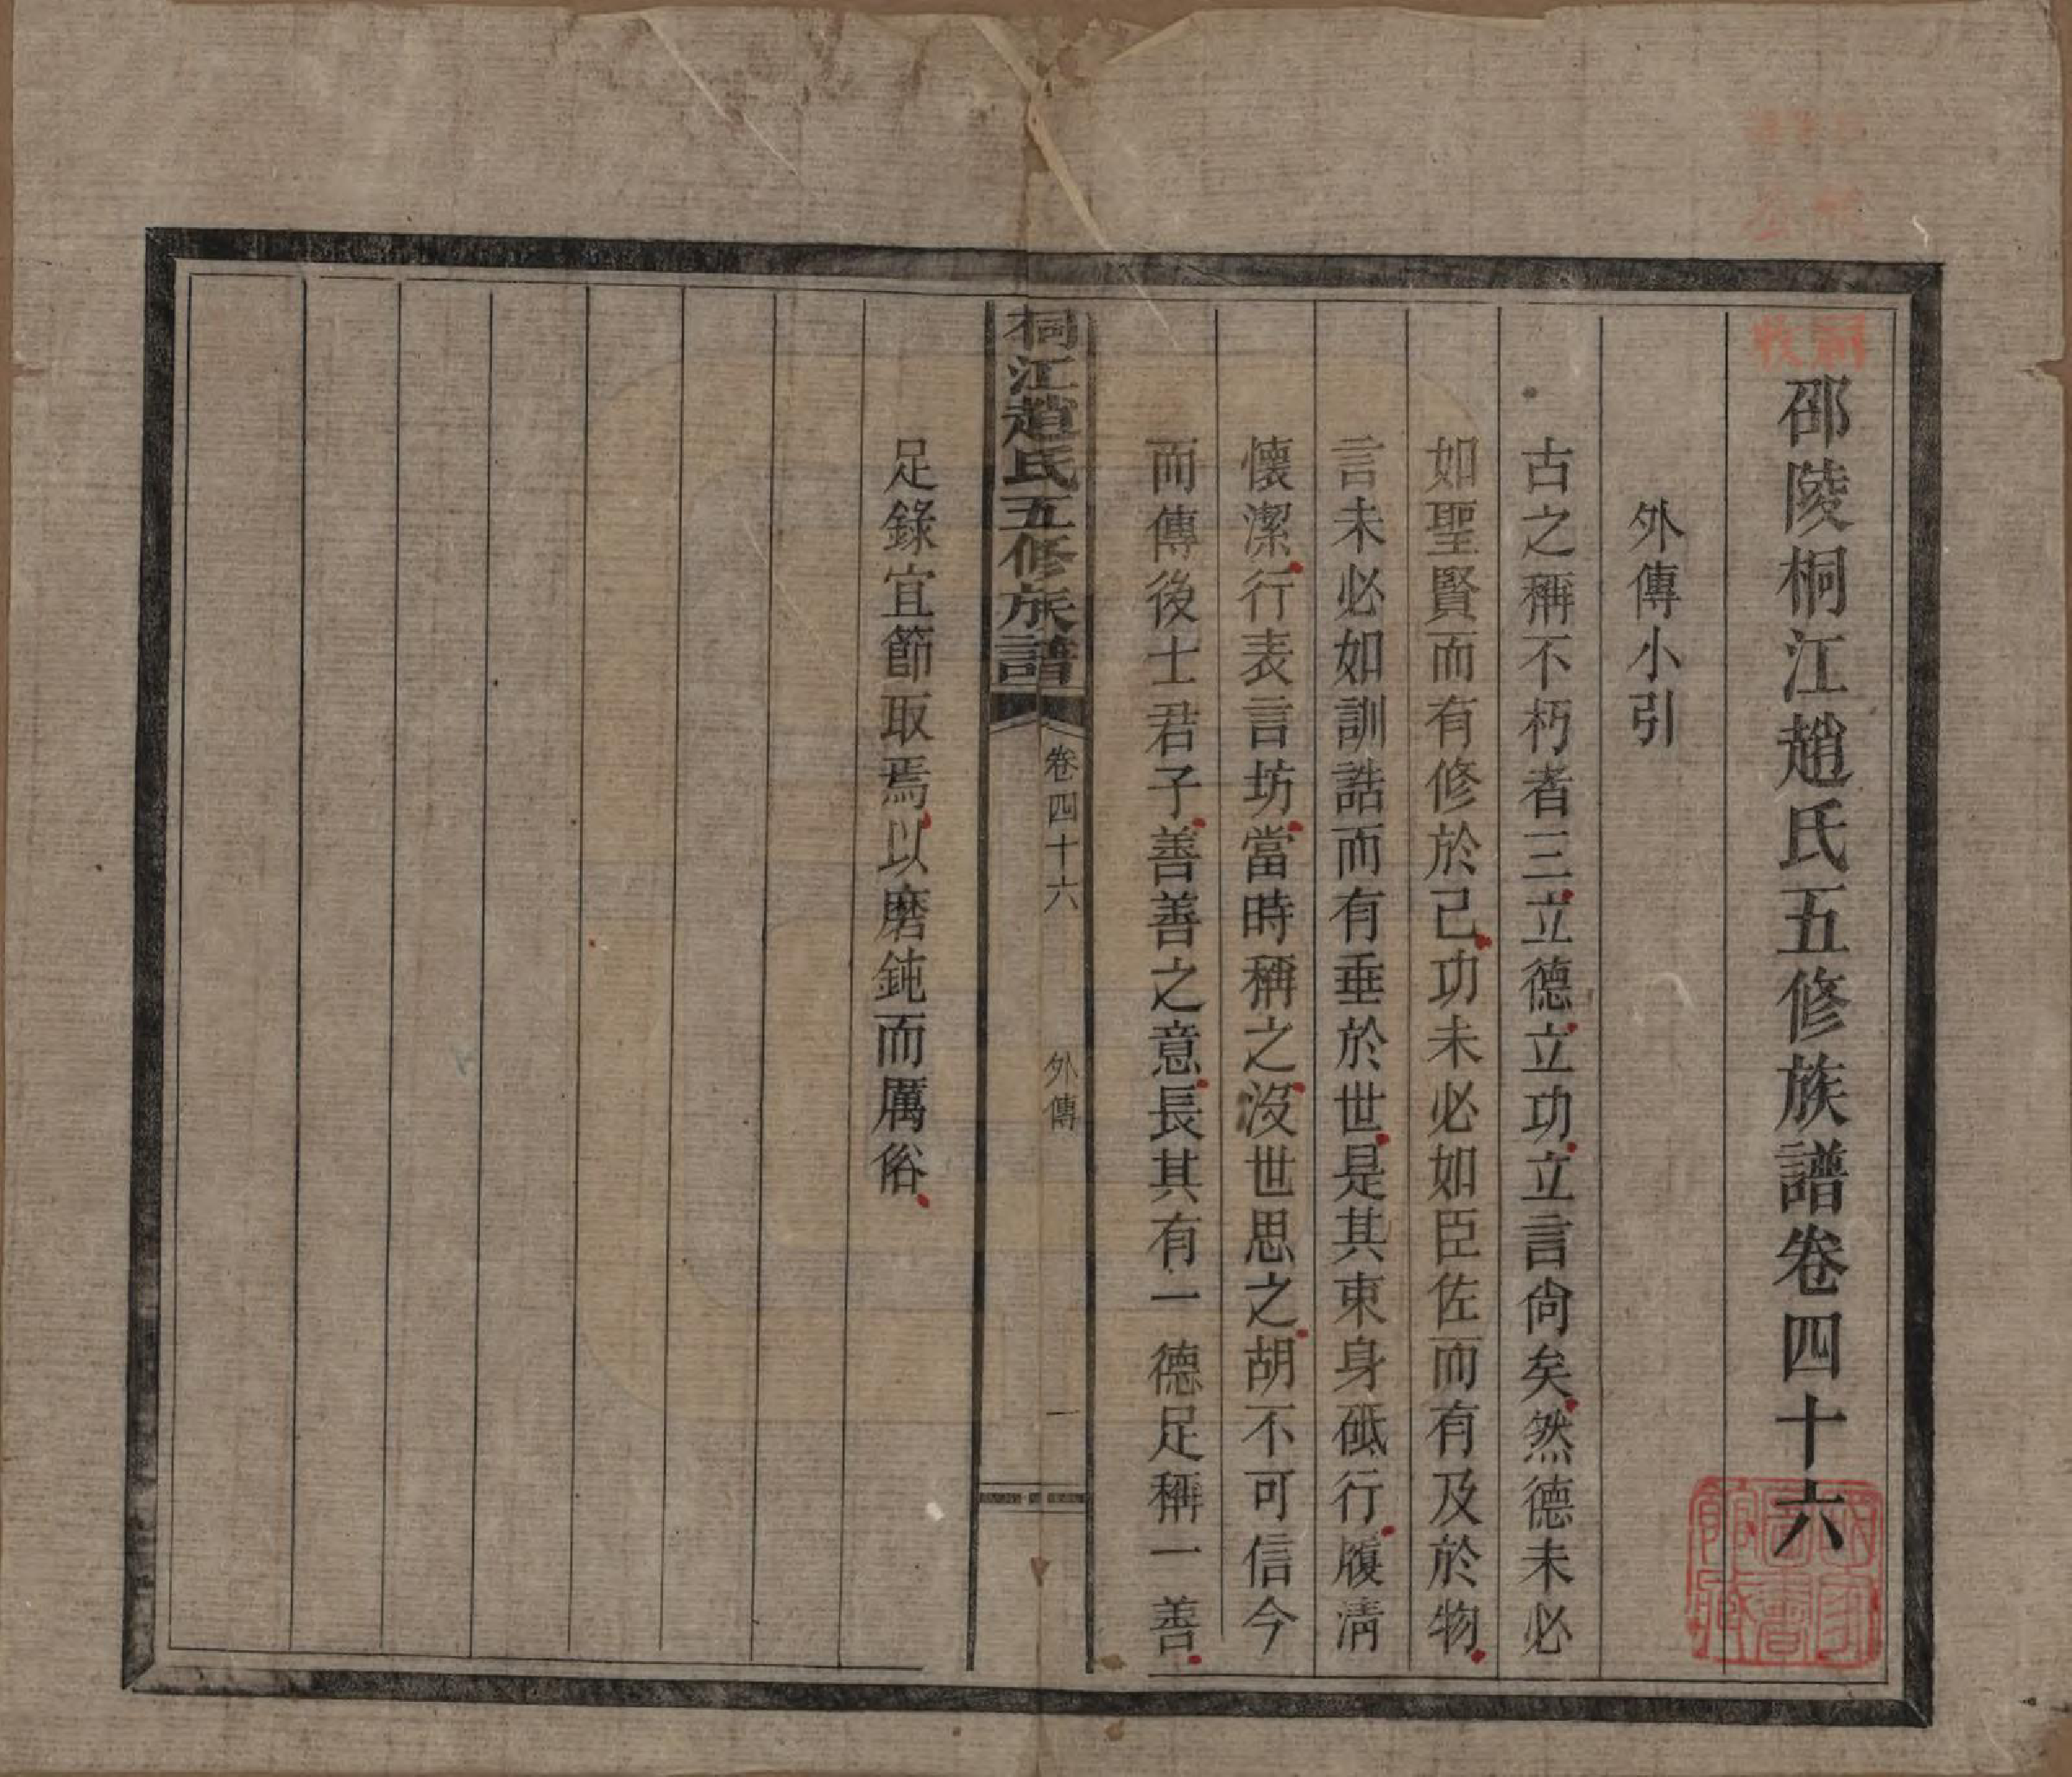 邵陵桐江趙氏五修族譜卷四十六
外傳小引
古之稱不朽者三立德立功立言尙矣然德未必
如聖賢而有修於己功未必如臣佐而有及於物
言未必如訓誥而有垂於世是其束身砥行履淸
懷潔行表言坊當時稱之沒世思之胡不可信今
而傳後士君子善善之意長其有一德足稱一善
桐江趙氏五修族譜
卷四十六
外傳
一
足錄宜節取焉以磨鈍而厲俗